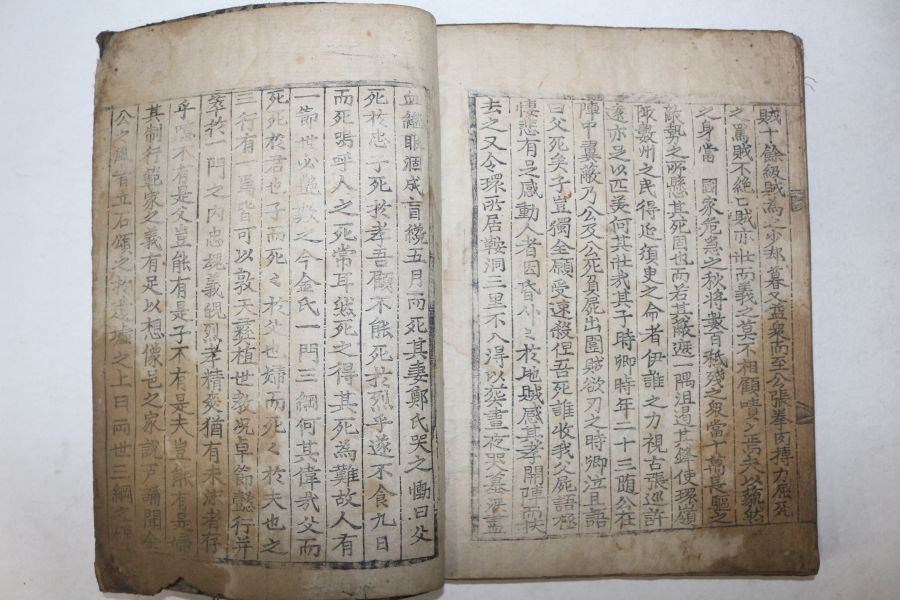 賊十餘級賊為一少却暮又盡衆而至公張拳肉搏力屈死
之罵賊不絶口賊亦壯而義之莫不相顧嘖之焉夫以藐然
之身當 國家危急之秋將數百秪殘之衆當十萬長驅之
敵勢之所懸其死固也而若其敵遮一隅沮遏其鋒使環嶺
數州之民得延須臾之命者伊誰之力視古張巡許
遠亦足以匹美何其壯哉其子時卿時年二十三隨公在
陣中翼蔽乃公及公死負屍出圍賊欲刃之時卿泣且語
曰父死矣子豈獨全願受速殺但吾死誰收我父屍語極
悽悲有足感動人者因昏仆之於地賊感其孝開陣而扶
去之又令環所居鞍洞三里不入得以葬晝夜哭墓
血繼眼涸成盲纔五月而死其妻鄭氏哭之慟曰父
死於忠子死於孝吾顧不能死於烈乎遂不食九日
而死嗚呼人之死常耳然死之得其死為難故人有
一節世必艶歎之今金氏一門三綱何其偉哉父而
死死於君也子而死之於父也婦而死之於夫也之
三行有一焉皆可以敦天彛植世教况卓節懿行并
萃於一門之内忠魂義魄烈孝精爽猶有未泯者存
乎噫不有是父豈能有是子不有是夫豈能有是婦
其制行範家之義有足以想像邑之家說戶誦聞令
公之風旨立石頌之於遺墟之上曰兩世三綱之